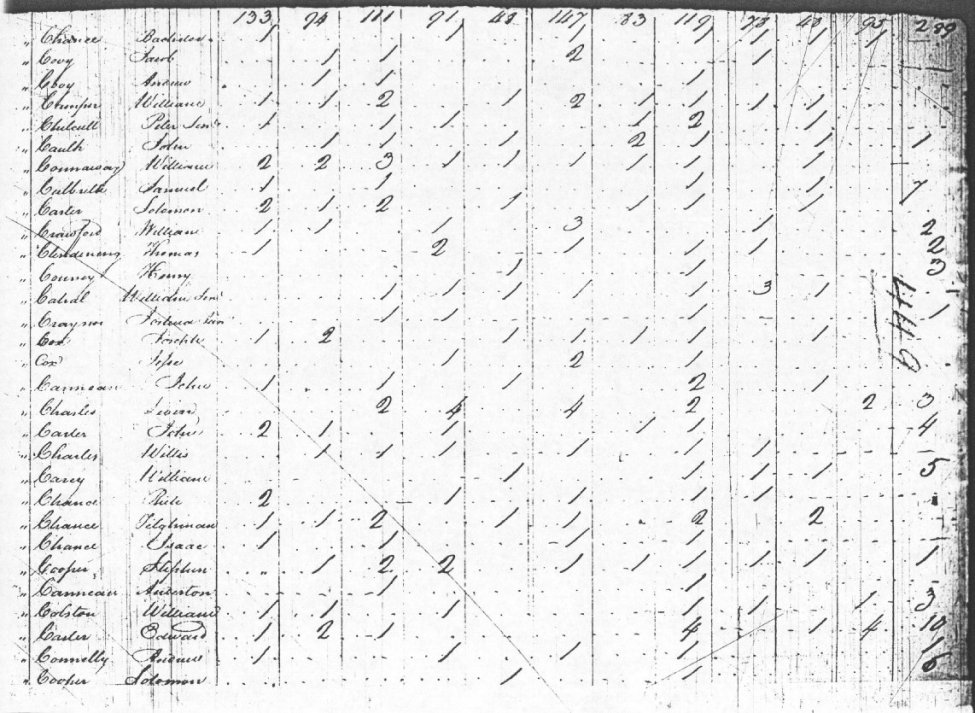 133 94 111 91 48 147 83 119 78 48 93 289
" Chance 1 1 1 1 1 1 1
" Covy Jacob 1 1 2 1
" Covy Andrew 1 1 1
" William 1 1 2 1 2 1 1 1 1
" Chilcutt Peter Senr 1 1 1 1 2 1
" Caulk John 1 1 1 2 1 1 1
" Connaway William 2 2 3 1 1 1 1 1 1
" Culbreth Samuel 1 1 1 1 7
" Carter Solomon 2 1 2 1 1 1 1
" Crawford William 1 1 1 3 1 2
" Clendening Thomas 1 2 1 1 1 2
" Henry 1 1 3
" William Senr 1 1 1 1 1 3 1 1
" Joshua 1 1 1 1
" Cox Joseph 1 2 1 1 1 1 1
" Cox Jesse 1 2 1
" Cannean John 1 1 1 2 1
" Charles Levin 2 4 4 2 2 3
" Carter John 2 1 1 1 1 4
" Charles Willis 1 1 1 1 1 1
" Carey William 1 1 1 1 5
" Chance 2 1 1 1 1
" Chance Tilghman 1 1 2 1 1 2 2
" Chance Isaac 1 1 1 1
" Cooper Stephen " 1 2 2 1 1 1 1 1 1
" Cannean 1 1
" Colston William 1 1 1 1 1 1 3
" Carter Edward 1 2 1 4 1 4 10
" Connelly Andrew 1 1 1 1 1
" Cooper Solomon 1 1 6